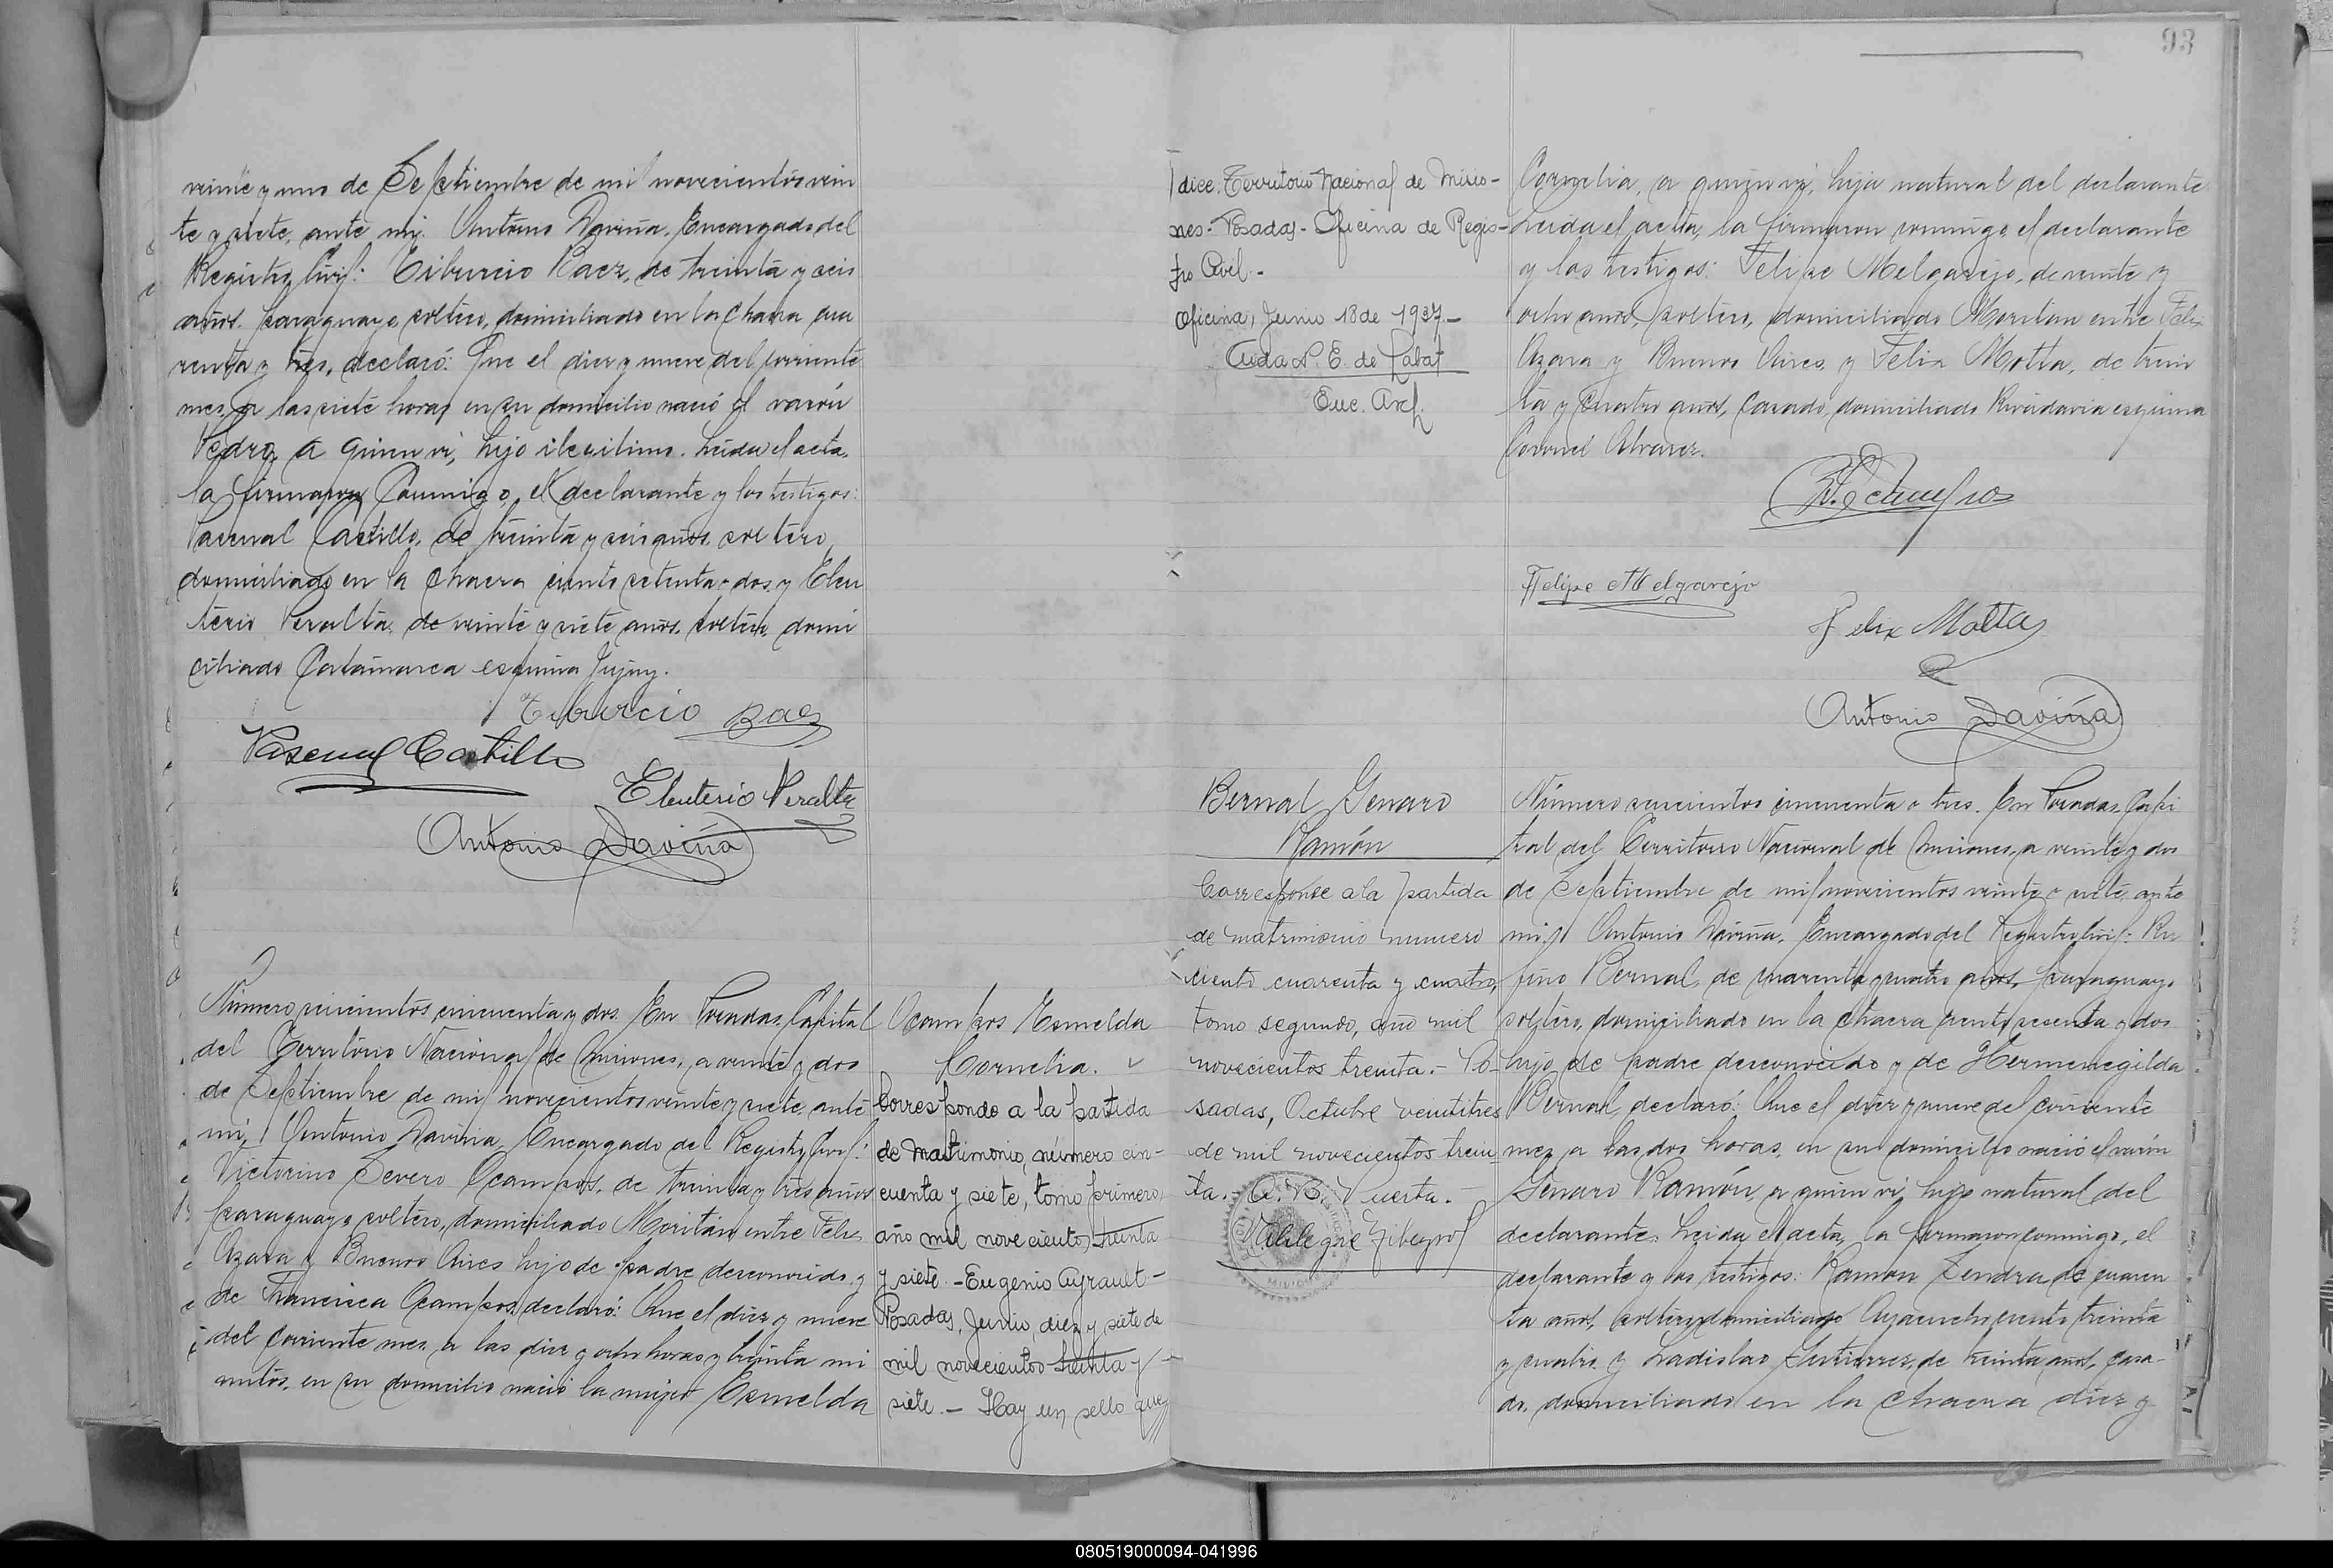 veinte y uno de Septiembre de mil novecientos vein
te y siete, ante mi, Antonio Daviña, Encargado del
Registro Civil: Tiburcio Baez, de treinta y seis
años, paraguayo, soltero, domiciliado en la chacra cua
renta y tres, declaró: Que el diez y nueve del corriente
mes, a las siete horas en su domicilio nació el varón
Pedro, a quien vi, hijo ilegitimo. Leida el acta,
la firmaron conmigo, el declarante y los testigos:
Pascual Castillo, de treinta y seis años, soltero,
domiciliado en la chacra ciento setenta y dos, y Eleu
terio Peralta, de veinte y siete años, soltero, domi
ciliado Catamarca esquina Jujuy.
Tiburcio Baez
Pascual Castillo
Eleuterio Peralta
Antonio Daviña
Número seiscientos cincuenta y dos. En Posadas, Capital
del Territorio Nacional de Misiones, a veinte y dos
de Septiembre de mil novecientos veinte y siete, ante
mi, Antonio Daviña, Encargado del Registro Civil:
Victorino Severo Ocampos, de treinta y tres años
paraguayo, soltero, domiciliado Moritán entre Felix
Azara y Buenos Aires hijo de padre desconocido y
de Francisca Ocampos, declaró: Que el diez y nueve
del corriente mes, a las diez y ocho horas y treinta mi
nutos, en su domicilio nació la mujer Esmelda
Ocampos Esmelda
Cornelia.
Corresponde a la partida
de matrimonio, número cin-
cuenta y siete, tomo primero,
año mil novecientos treinta
y siete. - Eugenio Ayrault -
Posadas, Junio, diez y siete de
mil novecientos treinta y
siete. - Hay un sello que
dice: Territorio Nacional de Misio-
nes - Posadas - Oficina de Regis-
tro Civil. -
Oficina, Junio 18 de 1937. -
Enc. Arch.
93
Cornelia, a quien vi, hija natural del declarante
Leida el acta, la firmaron conmigo, el declarante
y los testigos: Felipe Melgarejo, de veinte y
ocho años, soltero, domiciliado Moritán entre Felix
Azara y Buenos Aires, y Felix Motta, de trein
ta y cuatro años, casado, domiciliado Rivadavia esquina
Coronel Alvarez.
Felipe Melgarejo
Felix Motta
Antonio Daviña
Bernal Genaro
Ramón
Corresponde a la partida
de matrimonio numero
ciento cuarenta y cuatro,
tomo segundo, año mil
novecientos treinta. - Po-
sadas, Octubre veintitres
de mil novecientos trein-
ta. - A. B. Puerta. -
Número seiscientos cincuenta y tres. En Posadas, Capi
tal del Territorio Nacional de Misiones, a veinte y dos
de Septiembre de mil novecientos veinte y siete, ante
mi, Antonio Daviña, Encargado del Registro Civil: Ru
fino Bernal, de cuarenta y cuatro años, paraguayo
soltero, domiciliado en la chacra ciento sesenta y dos
hijo de padre desconocido y de Hermenegilda
Bernal, declaró: Que el diez y nueve del corriente
mes, a las dos horas, en su domicilio nació el varón
Genaro Ramón, a quien vi, hijo natural del
declarante. Leida el acta, la firmaron conmigo, el
declarante y los testigos: Ramon Zendra de cuaren
ta años, soltero, domiciliado Ayacucho ciento treinta
y cuatro, y Ladislao Gutierrez, de treinta años, casa-
do, domiciliado en la chacra diez y
080519000094-041996